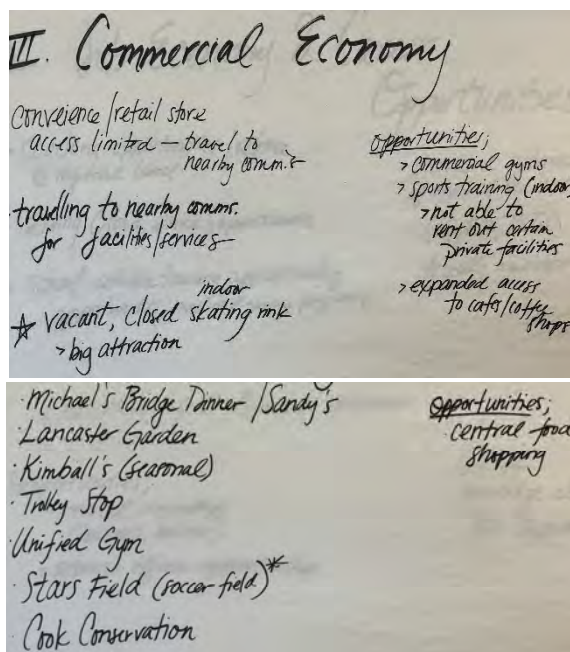 III. Commercial Economy
Conveience/retail store
access limited — travel to
nearby comm.'s
travelling to nearby comms.
for facilities/services
☆ vacant, closed indoor skating rink
> big attraction
opportunities;
> commercial gyms
> sports training (indoor
> not able to
rent out certain
private facilities
> expanded access
to cafes/coffee
shops
· Michael's Bridge Dinner/Sandy's
· Lancaster Garden
· Kimball's (seasonal)
· Trolley Stop
· Unified Gym
· Stars Field (soccer field)*
· Cook Conservation
opportunities;
· central food
shopping